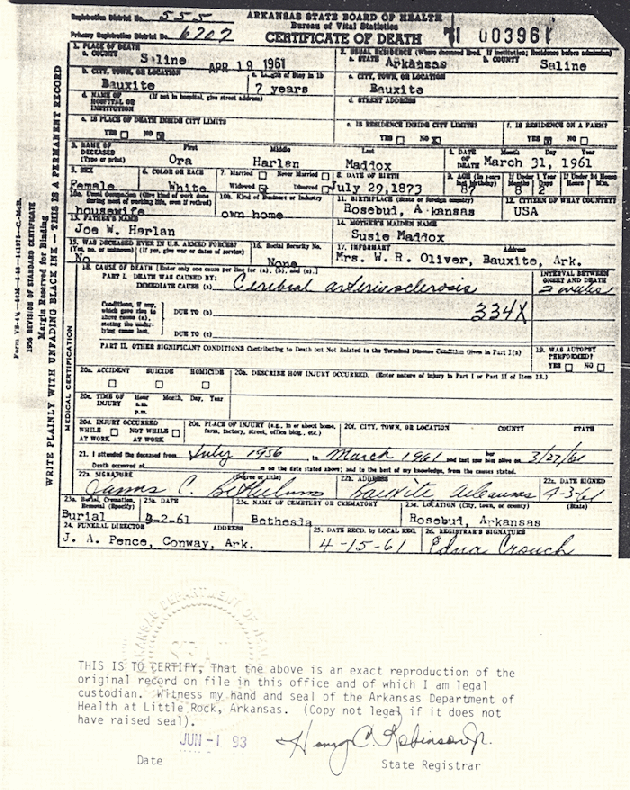 Registration District No. 555
ARKANSAS STATE BOARD OF HEALTH
Bureau of Vital Statistics
Primary Registration District No. 6707
CERTIFICATE OF DEATH
003961
1. PLACE OF DEATH
a. COUNTY
Saline
APR 19 1961
2. USUAL RESIDENCE (Where deceased lived. If institution; Residence before admission)
a. STATE Arkansas
b. COUNTY
Saline
b. CITY, TOWN, OR LOCATION
Bauxite
c. Length of Stay in 1b
7 years
c. CITY, TOWN, OR LOCATION
Bauxite
d. NAME OF HOSPITAL OR INSTITUTION
(If not in hospital, give street address)
d. STREET ADDRESS
e. IS PLACE OF DEATH INSIDE CITY LIMITS?
YES NO
e. IS RESIDENCE INSIDE CITY LIMITS?
YES NO
f. IS RESIDENCE ON A FARM?
YES NO
3. NAME OF DECEASED
(Type or print)
First
Ora
Middle
Harlan
Last
Maddox
4. DATE OF DEATH
Month Day Year
March 31, 1961
5. SEX
Female
6. COLOR OR RACE
White
7. Married Never Married
Widowed Divorced
8. DATE OF BIRTH
July 29, 1873
9. AGE (In years last birthday)
87
If Under 1 Year
Months Days
8 2
If Under 24 Hours
Hours Min.
10a. Usual Occupation (Give kind of work done during most of working life, even if retired)
housewife
10b. Kind of Business or Industry
own home
11. BIRTHPLACE (State or foreign country)
Rosebui, Arkansas
12. CITIZEN OF WHAT COUNTRY?
USA
13. FATHER'S NAME
Joe W. Harlan
14. MOTHER'S MAIDEN NAME
Susie Maddox
15. WAS DECEASED EVER IN U.S. ARMED FORCES?
(Yes, no, or unknown) (If yes, give war or dates of service)
No
16. Social Security No.
None
17. INFORMANT Address
Mrs. W. R. Oliver, Bauxite, Ark.
18. CAUSE OF DEATH [Enter only one cause per line for (a), (b), and (c).]
PART I. DEATH WAS CAUSED BY:
IMMEDIATE CAUSE (a) Cerebral arteriosclerosis
INTERVAL BETWEEN ONSET AND DEATH
Conditions, if any, which gave rise to above cause (a), stating the underlying cause last.
DUE TO (b)
334X
DUE TO (c)
PART II. OTHER SIGNIFICANT CONDITIONS Contributing to Death but Not Related to the Terminal Disease Condition Given in Part I(a)
19. WAS AUTOPSY PERFORMED?
YES NO
20a. ACCIDENT SUICIDE HOMICIDE
20b. DESCRIBE HOW INJURY OCCURRED. (Enter nature of injury in Part I or Part II of Item 18.)
20c. TIME OF INJURY
Hour Month, Day, Year
a.m.
p.m.
20d. INJURY OCCURRED
WHILE AT WORK NOT WHILE AT WORK
20e. PLACE OF INJURY (e.g., in or about home, farm, factory, street, office bldg., etc.)
20f. CITY, TOWN, OR LOCATION COUNTY STATE
21. I attended the deceased from July 1956 to March 1961 and last saw her alive on 3/27/61
Death occurred at m on the date stated above; and to the best of my knowledge, from the causes stated.
22a. SIGNATURE
(Degree or title)
22b. ADDRESS
Bauxite Arkansas
22c. DATE SIGNED
4-3-61
23a. Burial, Cremation, Removal (Specify)
Burial
23b. DATE
-2-61
23c. NAME OF CEMETERY OR CREMATORY
Bethesla
23d. LOCATION (City, town, or county) (State)
Rosebui, Arkansas
24. FUNERAL DIRECTOR ADDRESS
J. A. Pence, Conway, Ark.
25. DATE RECD. by LOCAL REG.
4-15-61
26. REGISTRAR'S SIGNATURE
Edna Crouch
MEDICAL CERTIFICATION
WRITE PLAINLY WITH UNFADING BLACK INK — THIS IS A PERMANENT RECORD
Margin Reserved for Binding
1956 REVISION OF STANDARD CERTIFICATE
THIS IS TO CERTIFY, That the above is an exact reproduction of the
original record on file in this office and of which I am legal
custodian. Witness my hand and seal of the Arkansas Department of
Health at Little Rock, Arkansas. (Copy not legal if it does not
have raised seal).
JUN -1 93
Henry C. Robinson Jr.
Date
State Registrar